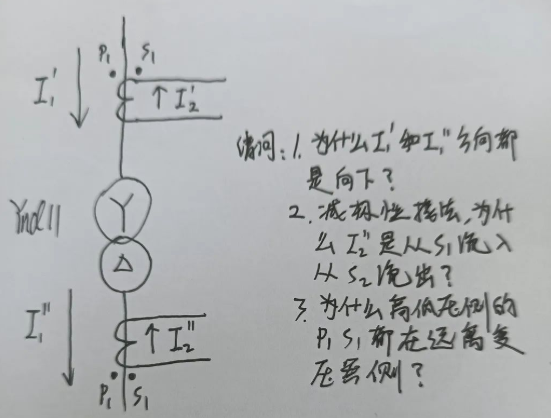 P₁ S₁
I₁' ↑ I₂'
Ynd11 Y
Δ
I₁'' ↑ I₂''
P₁ S₁
请问: 1. 为什么 I₁' 和 I₁'' 方向都
是向下?
2. 减极性接法, 为什
么 I₂'' 是从 S₁ 流入
从 S₂ 流出?
3. 为什么高低压侧的
P₁ S₁ 都在远离变
压器侧?